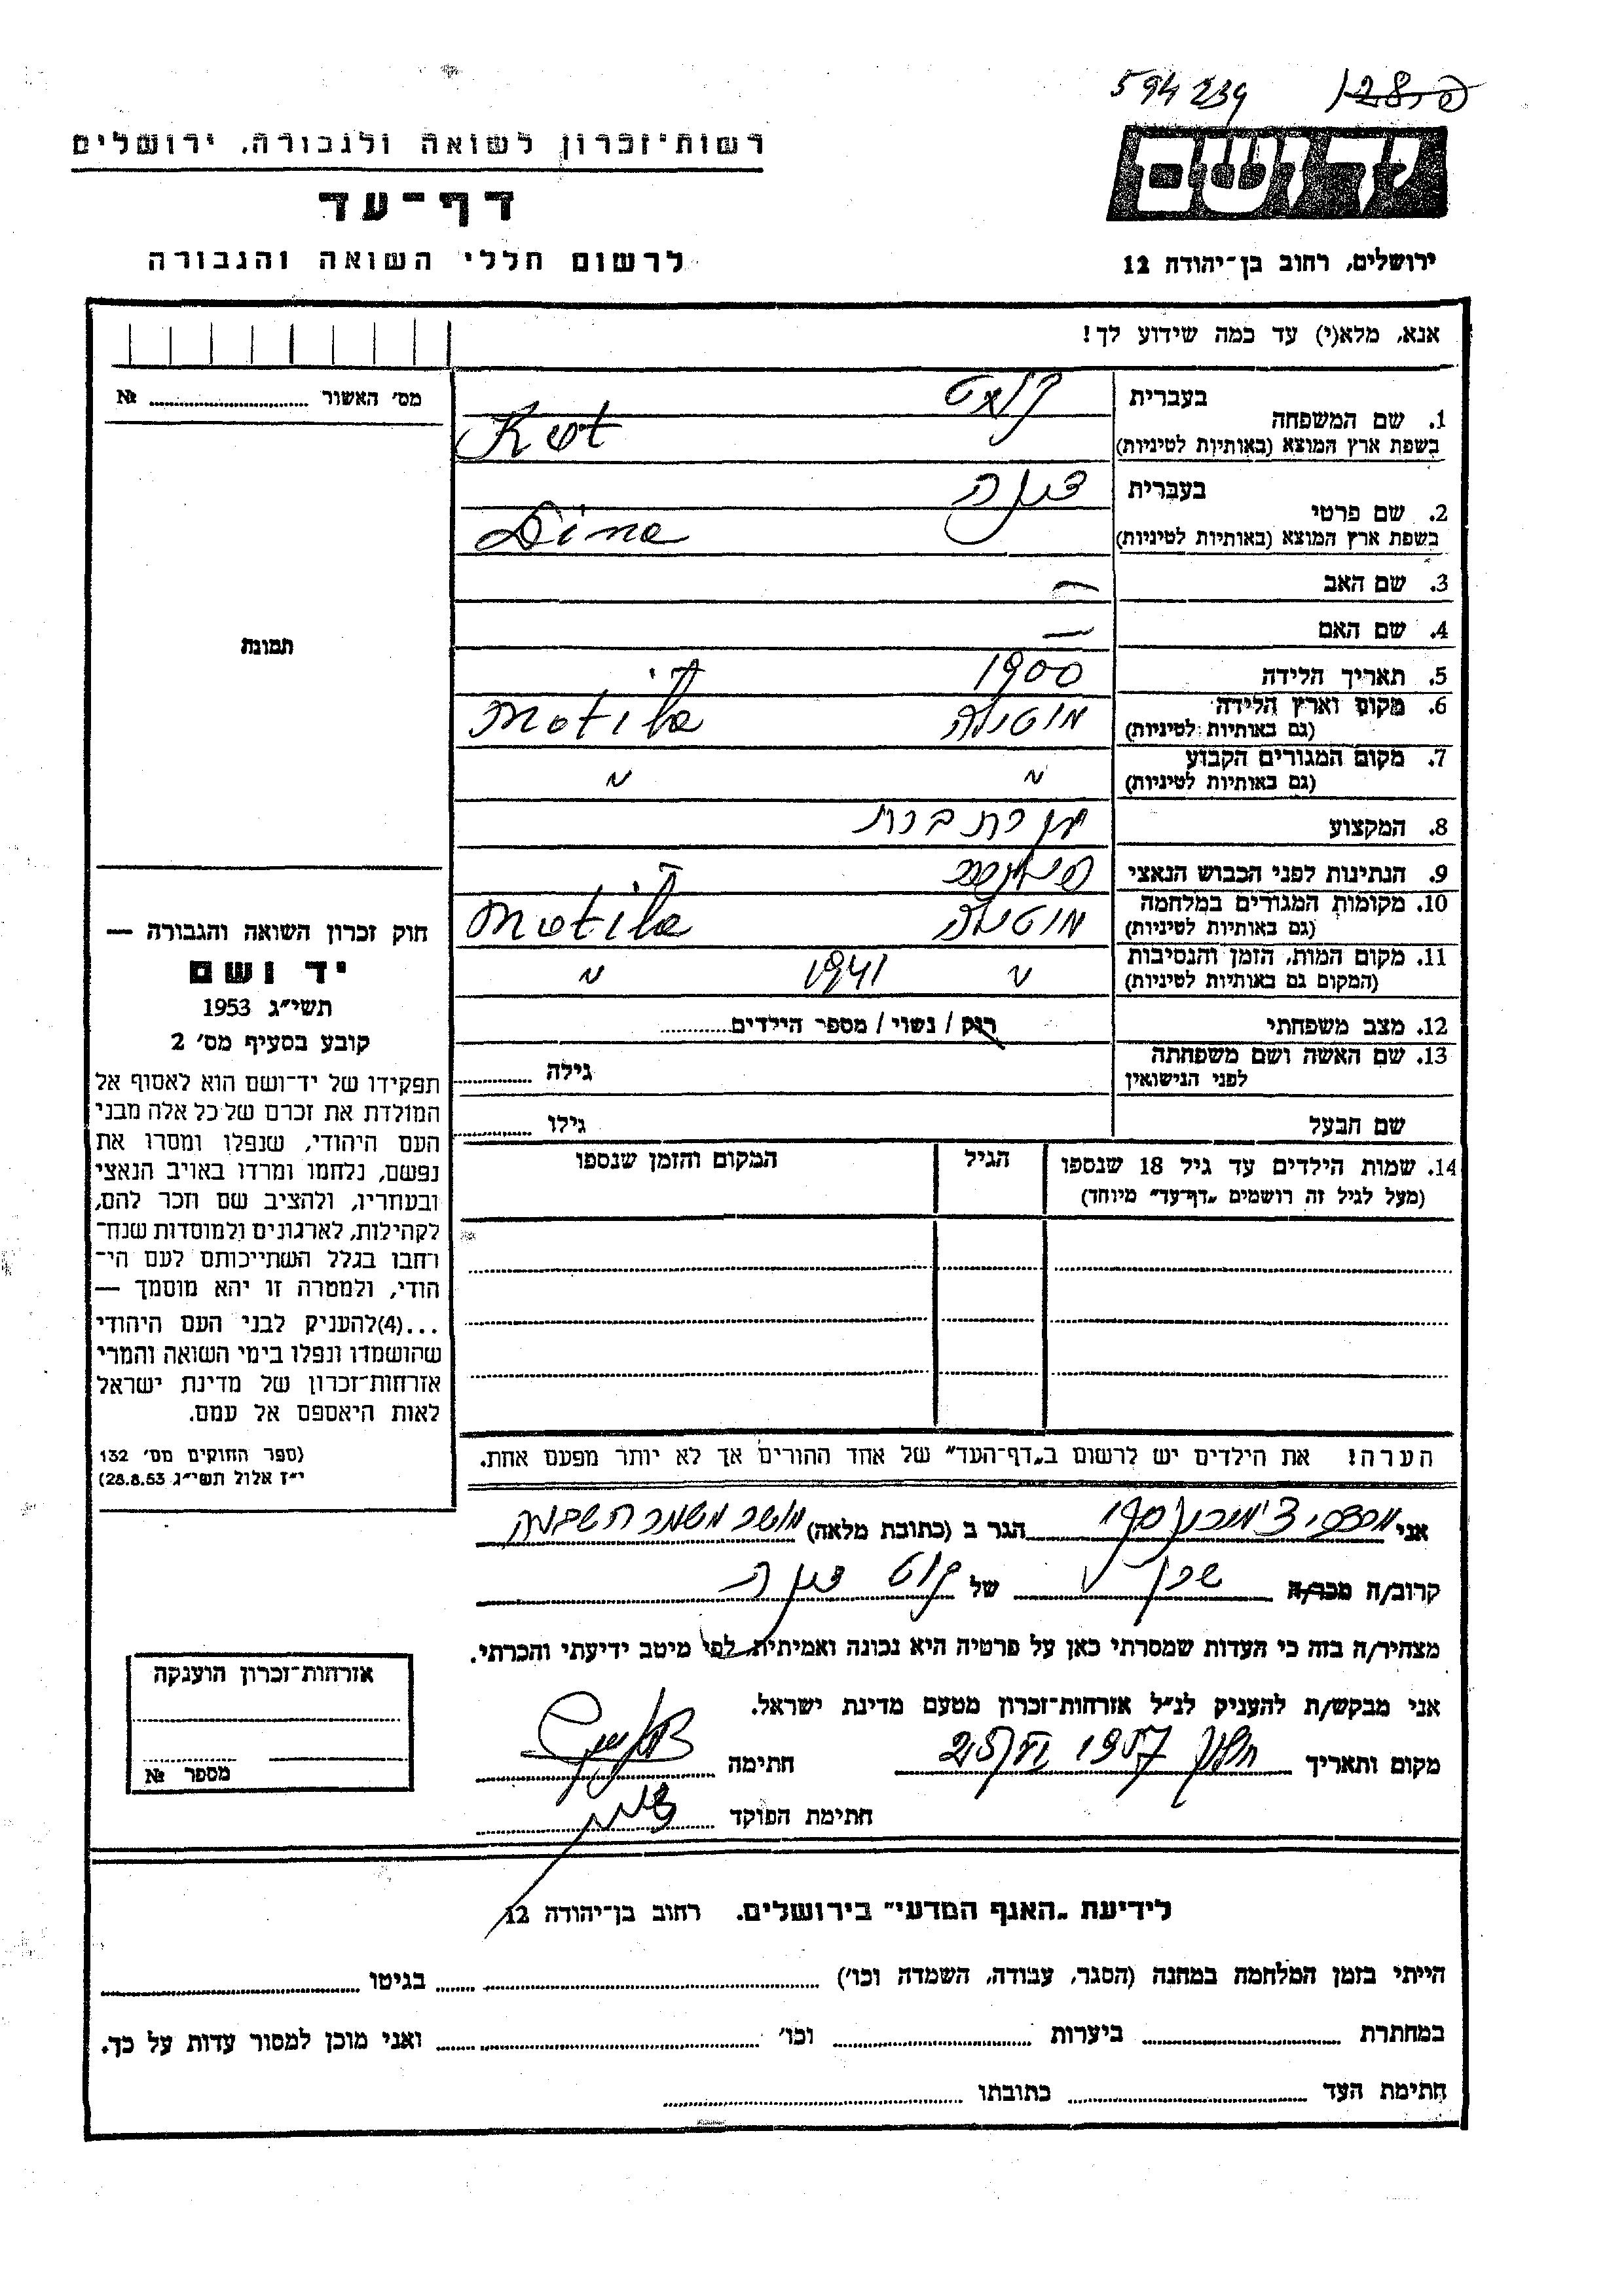 594239 פ-128
רשות-זכרון לשואה ולגבורה, ירושלים
יד ושם
דף-עד
לרשום חללי השואה והגבורה
ירושלים, רחוב בן-יהודה 12
אנא, מלא(י) עד כמה שידוע לך!
מס׳ האשור № 
1. שם המשפחה
בעברית
בשפת ארץ המוצא (באותיות לטיניות) Kot
2. שם פרטי
בעברית דינה
בשפת ארץ המוצא (באותיות לטיניות) Dina
3. שם האב —
4. שם האם —
תמונה
5. תאריך הלידה 1900
6. מקום וארץ הלידה
(גם באותיות לטיניות) מוטילה Motila
7. מקום המגורים הקבוע
(גם באותיות לטיניות) " "
8. המקצוע עקרת בית
9. הנתינות לפני הכבוש הנאצי
10. מקומות המגורים במלחמה
(גם באותיות לטיניות) מוטילה Motila
11. מקום המות, הזמן והנסיבות
(המקום גם באותיות לטיניות) " 1941 "
12. מצב משפחתי רוק / נשוי / מספר הילדים
13. שם האשה ושם משפחתה
לפני הנישואין גילה
שם הבעל גילו
14. שמות הילדים עד גיל 18 שנספו
(מעל לגיל זה רושמים „דף-עד” מיוחד)
הגיל
המקום והזמן שנספו
חוק זכרון השואה והגבורה —
יד ושם
תשי״ג 1953
קובע בסעיף מס׳ 2
תפקידו של יד-ושם הוא לאסוף אל
המולדת את זכרם של כל אלה מבני
העם היהודי, שנפלו ומסרו את
נפשם, נלחמו ומרדו באויב הנאצי
ובעוזריו, ולהציב שם וזכר להם,
לקהילות, לארגונים ולמוסדות שנח־
רבו בגלל השתייכותם לעם הי־
הודי, ולמטרה זו יהא מוסמך —
...(4)להעניק לבני העם היהודי
שהושמדו ונפלו בימי השואה והמרי
אזרחות-זכרון של מדינת ישראל
לאות היאספם אל עמם.
(ספר החוקים מס׳ 132
י״ז אלול תשי״ג 28.8.53)
הערה! את הילדים יש לרשום ב„דף-העד” של אחד ההורים אך לא יותר מפעם אחת.
אני מרדכי הגר ב (כתובת מלאה) מושב משמר השבעה
קרוב/ה מכר/ה שכן של קוט דינה
מצהיר/ה בזה כי העדות שמסרתי כאן על פרטיה היא נכונה ואמיתית, לפי מיטב ידיעתי והכרתי.
אני מבקש/ת להעניק לנ״ל אזרחות-זכרון מטעם מדינת ישראל.
מקום ותאריך חולון 1957 חתימה
חתימת הפוקד
אזרחות-זכרון הוענקה
מספר №
לידיעת „האגף המדעי” בירושלים. רחוב בן-יהודה 12
הייתי בזמן המלחמה במחנה (הסגר, עבודה, השמדה וכו׳) בגיטו
במחתרת ביערות וכו׳ ואני מוכן למסור עדות על כך.
חתימת העד כתובתו